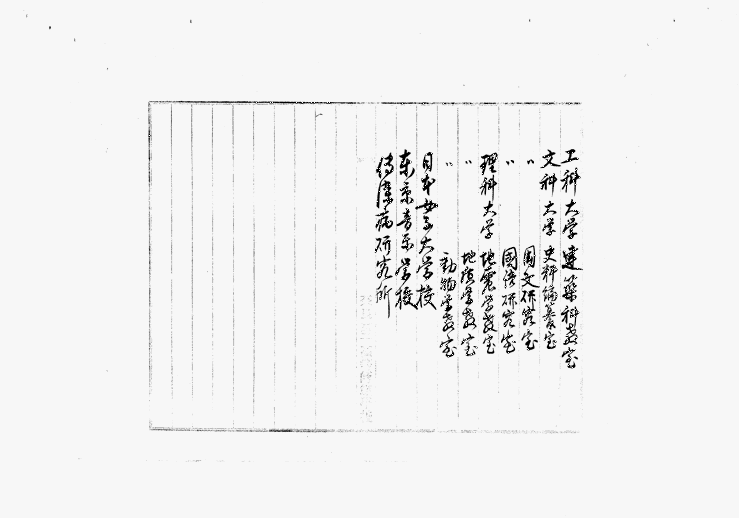 工科大学 建築科教室
文科大学 史料編纂室
〃 國文研究室
〃 國語研究室
理科大学 地震学教室
〃 地質学教室
〃 動物学教室
日本女子大学校
東京音楽学校
傳染病研究所